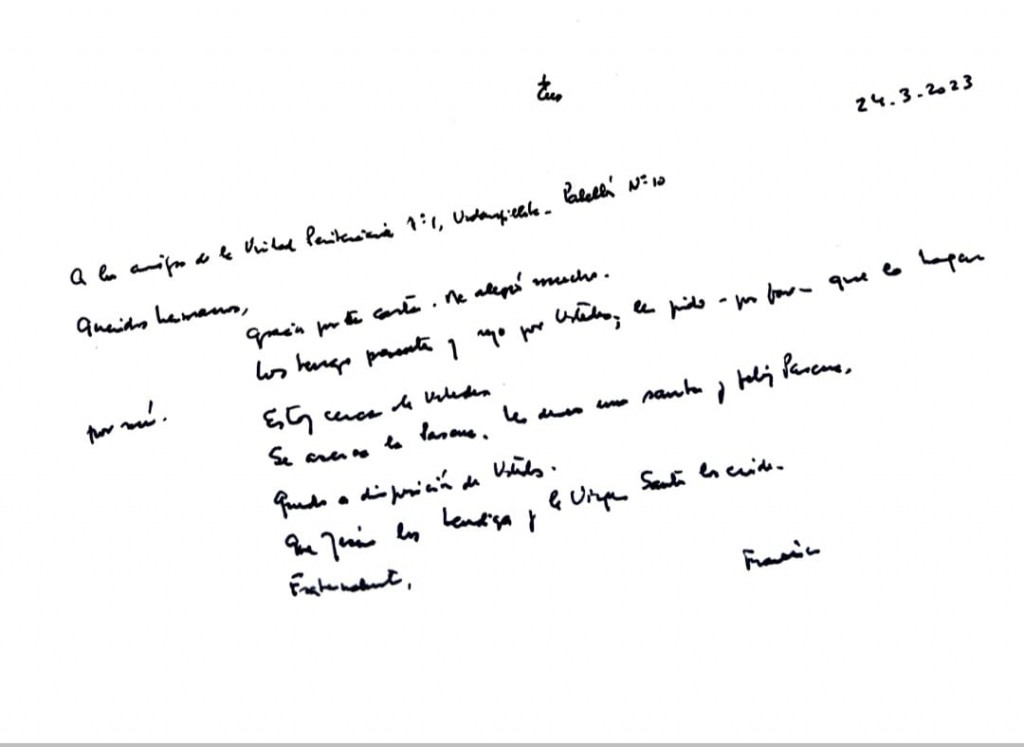 24.3.2023
A los amigos de la Unidad Penitenciaria Nº 1, Pabellón Nº 10
Queridos hermanos,
gracias por la carta. Me alegró mucho.
Los tengo presente y rezo por Ustedes; les pido - por favor - que lo hagan
por mí.
Estoy cerca de Ustedes
Se acerca la Pascua. Les deseo una santa y feliz Pascua.
Quedo a disposición de Ustedes.
Que Jesús los bendiga y la Virgen Santa los cuide.
Fraternalmente,
Francisco